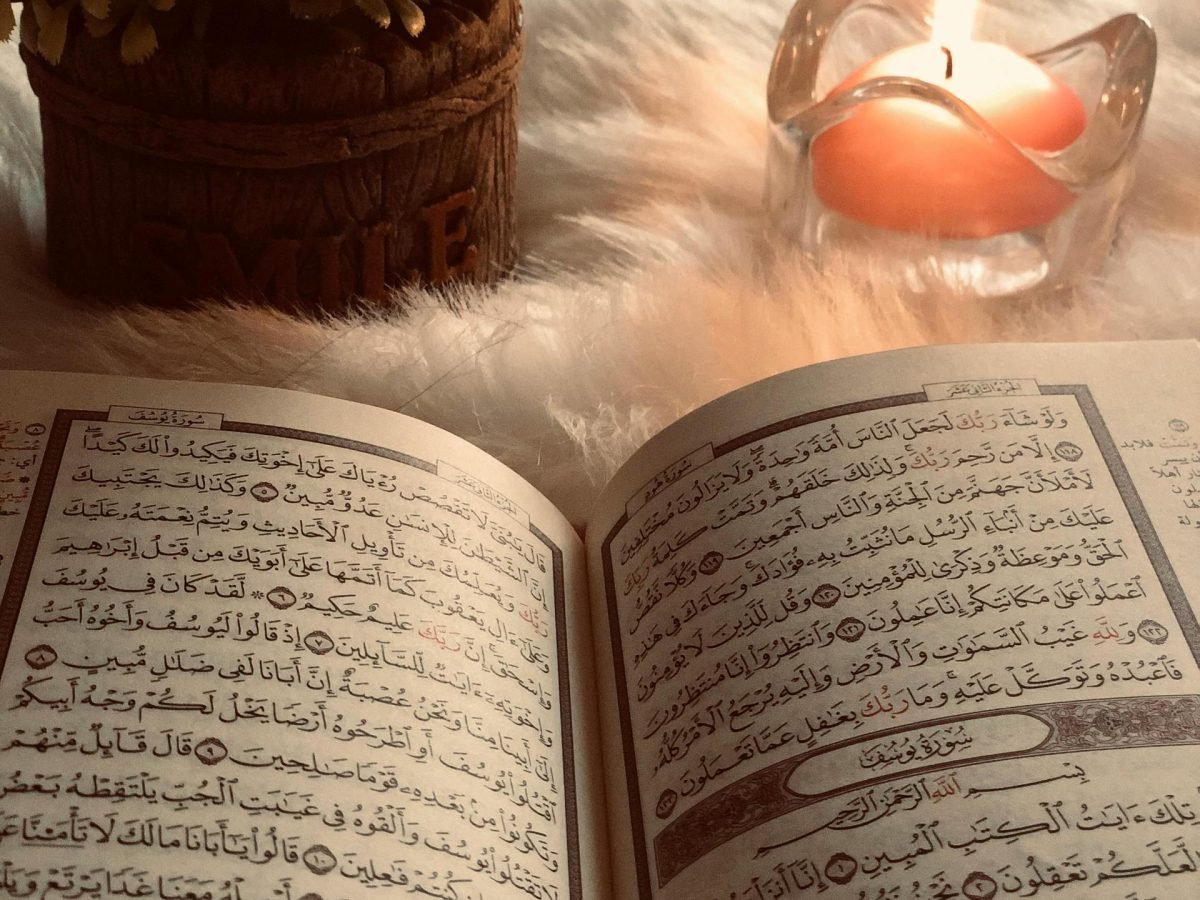 SMILE
الجزء الثاني عشر
سورة هود
وَلَوْ شَآءَ رَبُّكَ لَجَعَلَ ٱلنَّاسَ أُمَّةً وَٰحِدَةً وَلَا يَزَالُونَ مُخْتَلِفِينَ
١١٨ إِلَّا مَن رَّحِمَ رَبُّكَ وَلِذَٰلِكَ خَلَقَهُمْ وَتَمَّتْ كَلِمَةُ رَبِّكَ
لَأَمْلَأَنَّ جَهَنَّمَ مِنَ ٱلْجِنَّةِ وَٱلنَّاسِ أَجْمَعِينَ ١١٩ وَكُلًّا نَّقُصُّ
عَلَيْكَ مِنْ أَنۢبَآءِ ٱلرُّسُلِ مَا نُثَبِّتُ بِهِۦ فُؤَادَكَ وَجَآءَكَ فِي هَٰذِهِ
ٱلْحَقُّ وَمَوْعِظَةٌ وَذِكْرَىٰ لِلْمُؤْمِنِينَ ١٢٠ وَقُل لِّلَّذِينَ لَا يُؤْمِنُونَ
ٱعْمَلُوا۟ عَلَىٰ مَكَانَتِكُمْ إِنَّا عَٰمِلُونَ ١٢١ وَٱنتَظِرُوٓا۟ إِنَّا مُنتَظِرُونَ
١٢٢ وَلِلَّهِ غَيْبُ ٱلسَّمَٰوَٰتِ وَٱلْأَرْضِ وَإِلَيْهِ يُرْجَعُ ٱلْأَمْرُ كُلُّهُۥ
فَٱعْبُدْهُ وَتَوَكَّلْ عَلَيْهِ وَمَا رَبُّكَ بِغَٰفِلٍ عَمَّا تَعْمَلُونَ ١٢٣
سُورَةُ يُوسُفَ
بِسْمِ ٱللَّهِ ٱلرَّحْمَٰنِ ٱلرَّحِيمِ
تِلْكَ ءَايَٰتُ ٱلْكِتَٰبِ ٱلْمُبِينِ ١ إِنَّآ
لَّعَلَّكُمْ تَعْقِلُونَ ٢ نَحْنُ
الجزء الثاني عشر
سورة يوسف
قَالَ يَٰبُنَيَّ لَا تَقْصُصْ رُءْيَاكَ عَلَىٰٓ إِخْوَتِكَ فَيَكِيدُوا۟ لَكَ كَيْدًا
إِنَّ ٱلشَّيْطَٰنَ لِلْإِنسَٰنِ عَدُوٌّ مُّبِينٌ ٥ وَكَذَٰلِكَ يَجْتَبِيكَ
رَبُّكَ وَيُعَلِّمُكَ مِن تَأْوِيلِ ٱلْأَحَادِيثِ وَيُتِمُّ نِعْمَتَهُۥ عَلَيْكَ
وَعَلَىٰٓ ءَالِ يَعْقُوبَ كَمَآ أَتَمَّهَا عَلَىٰٓ أَبَوَيْكَ مِن قَبْلُ إِبْرَٰهِيمَ
وَإِسْحَٰقَ إِنَّ رَبَّكَ عَلِيمٌ حَكِيمٌ ٦ ۞ لَّقَدْ كَانَ فِي يُوسُفَ
وَإِخْوَتِهِۦٓ ءَايَٰتٌ لِّلسَّآئِلِينَ ٧ إِذْ قَالُوا۟ لَيُوسُفُ وَأَخُوهُ أَحَبُّ
إِلَىٰٓ أَبِينَا مِنَّا وَنَحْنُ عُصْبَةٌ إِنَّ أَبَانَا لَفِي ضَلَٰلٍ مُّبِينٍ ٨
ٱقْتُلُوا۟ يُوسُفَ أَوِ ٱطْرَحُوهُ أَرْضًا يَخْلُ لَكُمْ وَجْهُ أَبِيكُمْ
وَتَكُونُوا۟ مِنۢ بَعْدِهِۦ قَوْمًا صَٰلِحِينَ ٩ قَالَ قَآئِلٌ مِّنْهُمْ
لَا تَقْتُلُوا۟ يُوسُفَ وَأَلْقُوهُ فِي غَيَٰبَتِ ٱلْجُبِّ يَلْتَقِطْهُ بَعْضُ
كُنتُمْ فَٰعِلِينَ ١٠ قَالُوا۟ يَٰٓأَبَانَا مَا لَكَ لَا تَأْمَ۫نَّا
مَعَنَا غَدًا يَرْتَعْ